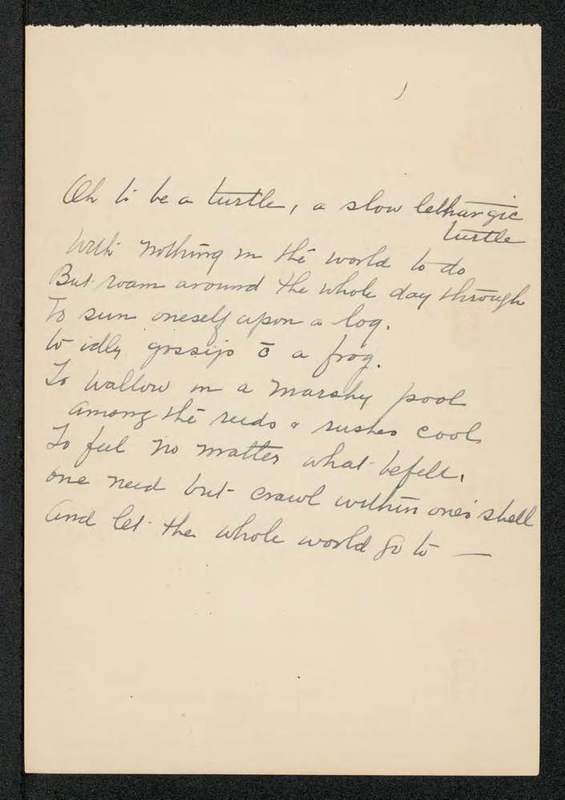 Oh to be a turtle, a slow lethargic
turtle
With nothing in the world to do
But roam around the whole day through
To sun oneself upon a log.
to idly gossip c̄ a frog.
To wallow in a marshy pool
Among the reeds & rushes cool
To feel no matter what befell,
one need but crawl within one's shell
And let the whole world go to —